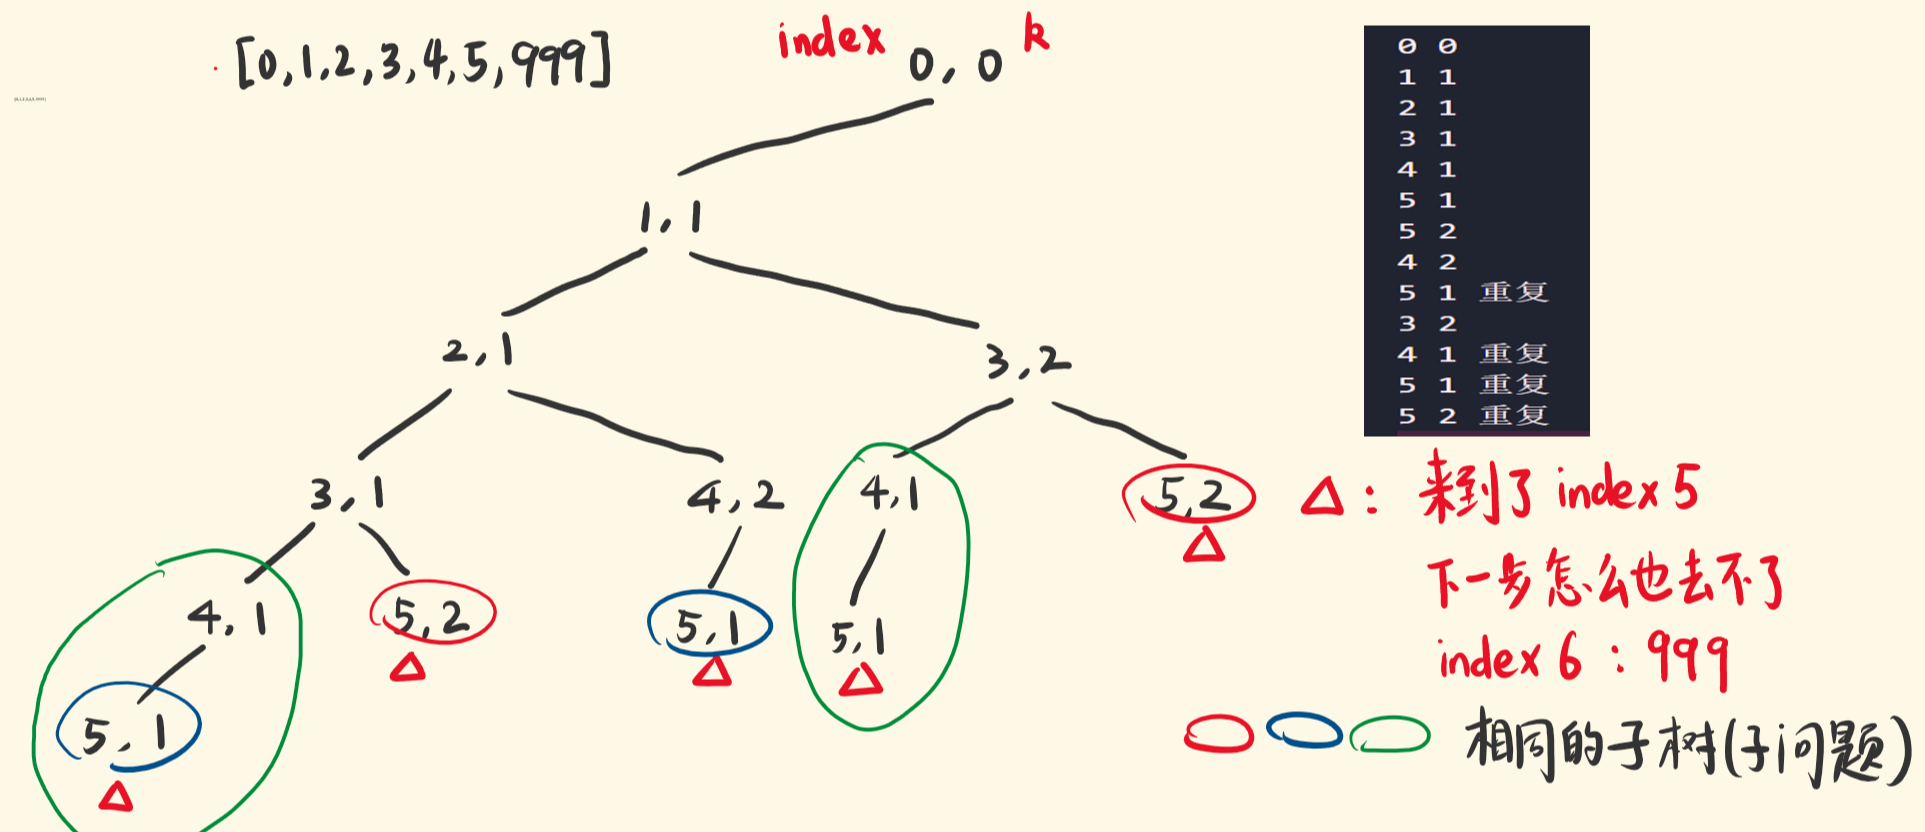 [0,1,2,3,4,5,999]
index 0,0 k
1,1
2,1
3,2
3,1
4,2
4,1
5,2
4,1
5,2
5,1
5,1
5,1
0 0
1 1
2 1
3 1
4 1
5 1
5 2
4 2
5 1 重复
3 2
4 1 重复
5 1 重复
5 2 重复
△: 来到了 index 5
下一步怎么也去不了
index 6 : 999
相同的子树(子问题)